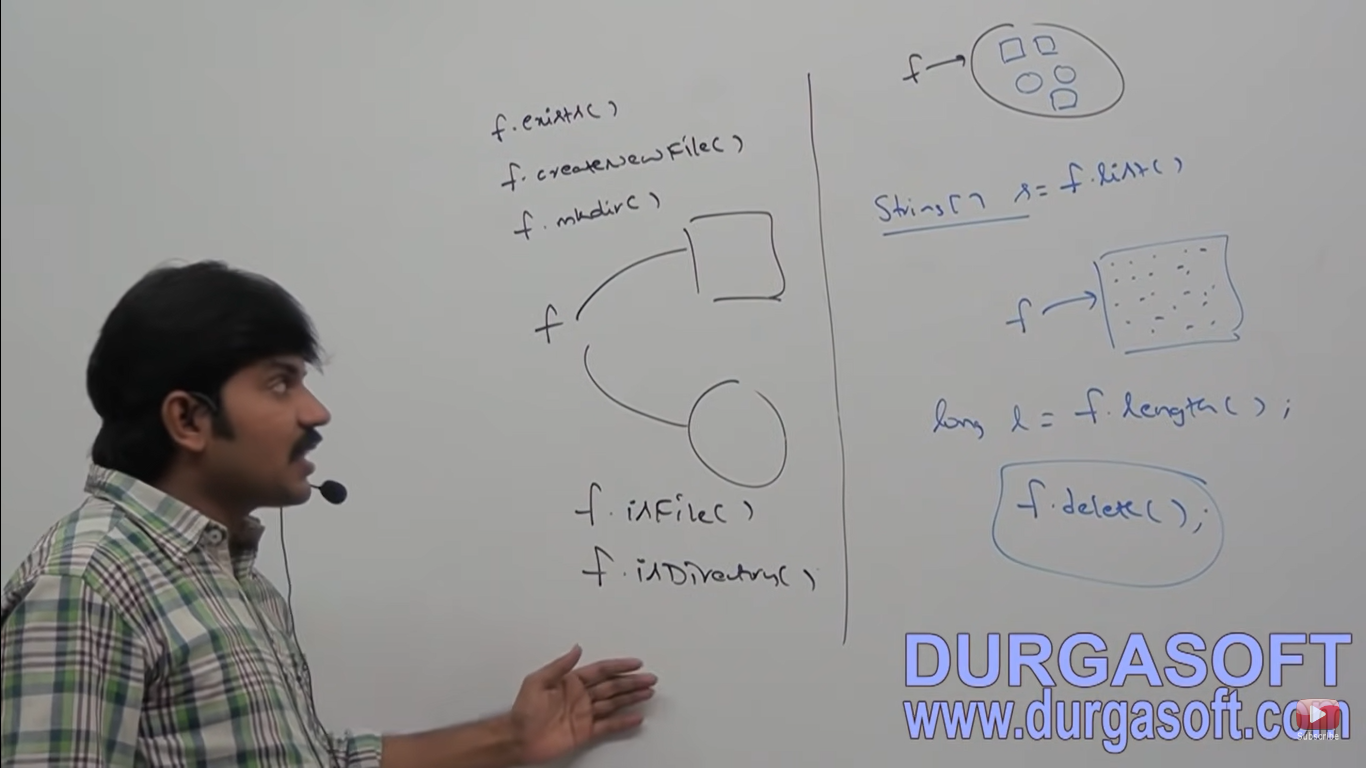 f.exists()
f.createNewFile()
f.mkdir()
f
f.isFile()
f.isDirectory()
f
String[] s= f.list()
f
long l = f.length();
f.delete();
DURGASOFT
www.durgasoft.com
Subscribe